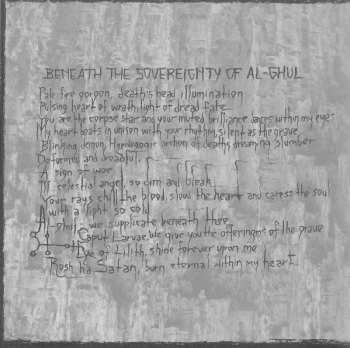 BENEATH THE SOVEREIGNTY OF AL-GHUL
Pale fire gorgon, death's head illumination
Pulsing heart of wrath, light of dread fate
You are the corpse star and your muted brilliance dances within my eyes
My heart beats in unison with your rhythm, silent as the grave
Blinking demon, Demogorgon of death's dreaming slumber
Deformed and dreadful
A sign of woe
Thy celestial angel, so dim and bleak
Your rays chill the blood, slow the heart and caress the soul
with a light so cold
we supplicate beneath thee
Caput Larvae we give you the offerings of the grave
Eye of Lilith, shine forever upon me
Rosh Ha Satan, burn eternal within my heart